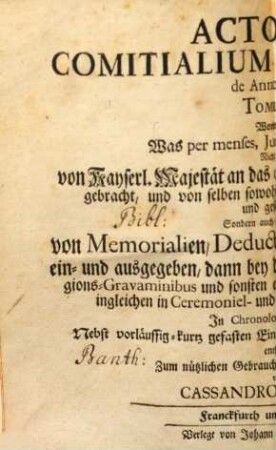 ACTO
COMITIALIUM
de Ann
TOM
Wor
Was per menses, Ju
Nic
von Kayserl. Majestät an das
gebracht, und von selben sowoh
und ge
Bibl:
Sondern auch
von Memorialien, Deduct
ein- und ausgegeben, dann bey d
gions-Gravaminibus und sonsten
ingleichen in Ceremoniel- und
In Chronolo
Nebst vorläuffig-kurtz gefasten Ein
ent
Banth:
Zum nützlichen Gebrauch
CASSANDRO
Franckfurth un
Verlegt von Johann